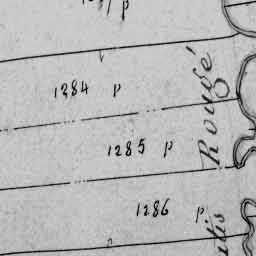 1284 p
1285 p
1286 p
Rougé